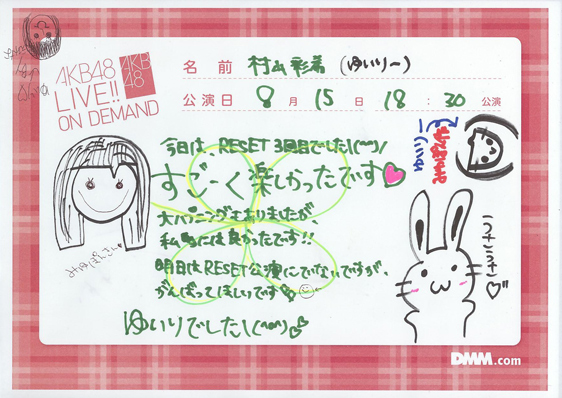 AKB48
LIVE!!
ON DEMAND
AKB
48
名前 村山彩希 (ゆいりー)
公演日 8月 15日 18:30 公演
今日は、RESET 3回目でした!(^^)/
すごーく楽しかったです
大ハプニングもありましたが、
私的には良かったです!!
明日はRESET公演にでないですが、
がんばってほしいです
ゆいりでした!(^o^)
みゆぽんさん
DMM.com